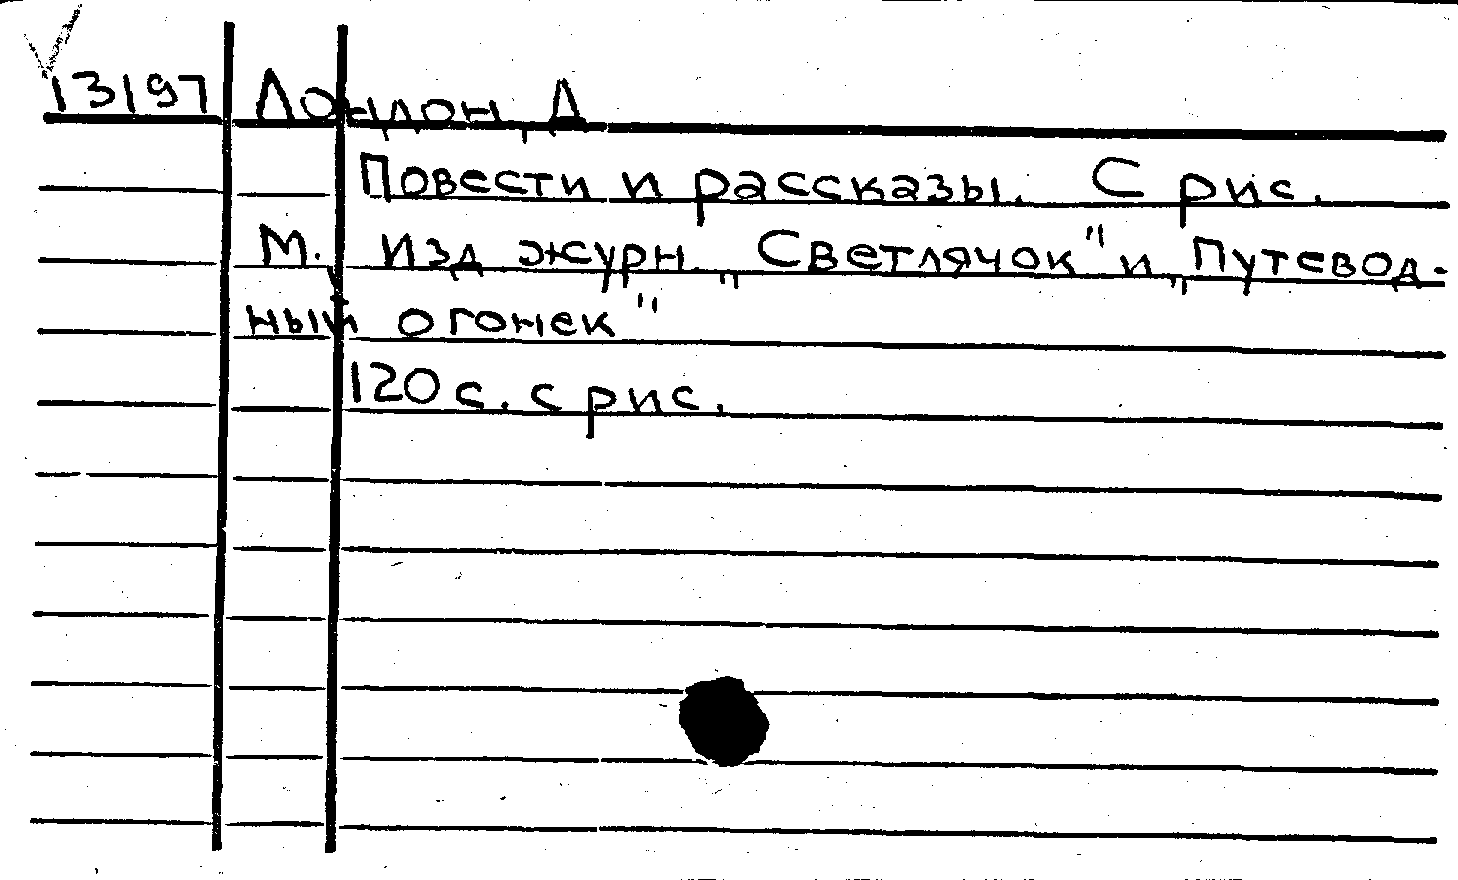 13197 Лондон, Д
Повести и рассказы. С рис.
М. Изд журн. „Светлячок" и „Путевод-
ный огонек"
120 с. с рис.